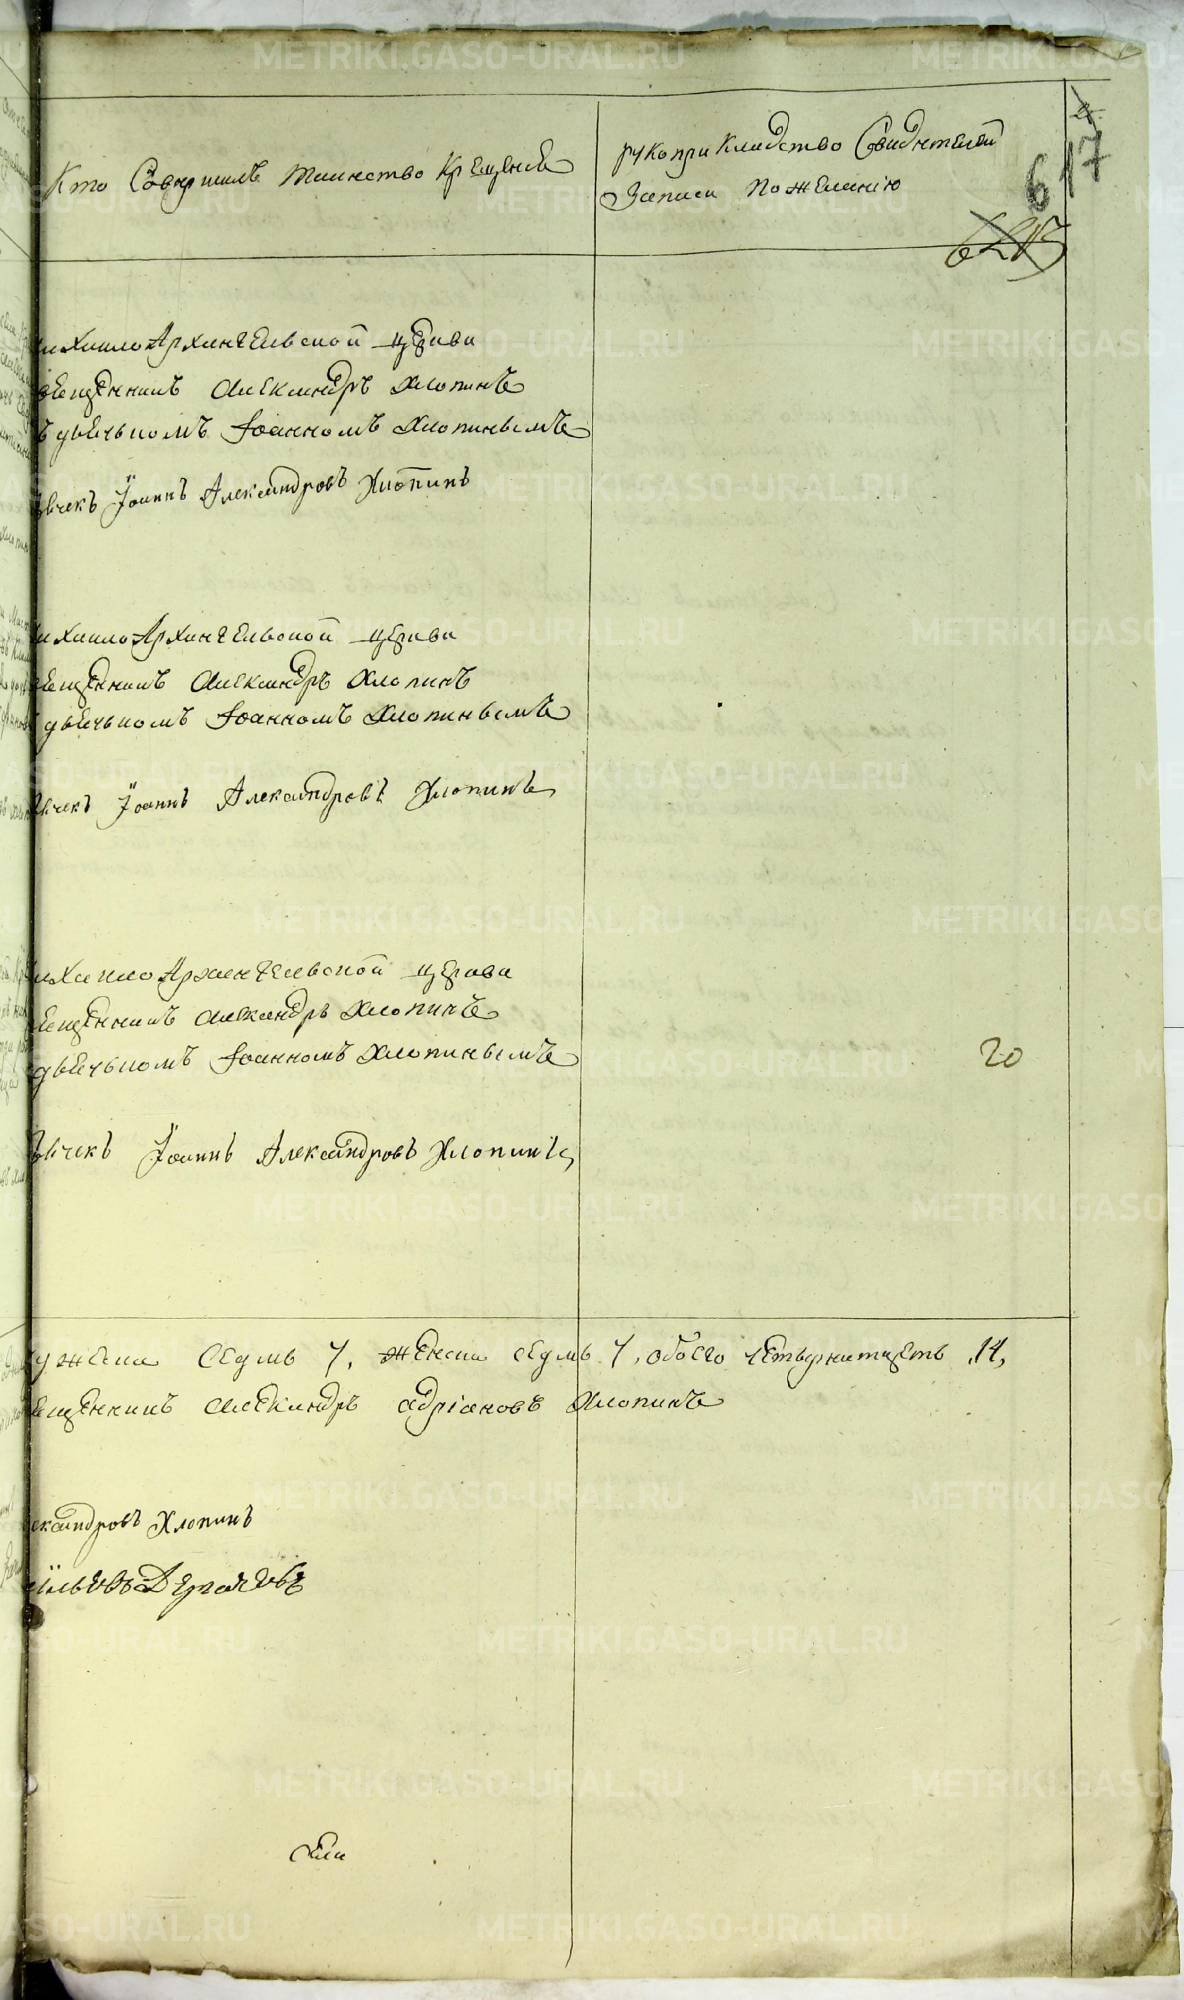 Кто Совершилъ таинство Крещенія
рукоприкладство Свидѣтелей
Записи по желанію
617
ихаилоАрхангельской церкви
священникъ Александръ Хлопинъ
ъ дьячькомъ Іоанномъ Хлопинымъ
ячекъ Іоаннъ Александровъ Хлопинъ
ихаилоАрхангельской церкви
ященникъ Александръ Хлопинъ
дьячькомъ Іоанномъ Хлопинымъ
ячекъ Іоаннъ Александровъ Хлопинъ
ихаилоАрхангельской церкви
ященникъ Александръ Хлопинъ
дьячькомъ Іоанномъ Хлопинымъ
20
ячекъ Іоаннъ Александровъ Хлопинъ
ужеска седмь 7, женска седмь 7, обоего четырнатцеть 14,
ященникъ Александръ Адріановъ Хлопинъ
ександровъ Хлопинъ
METRIKI.GASO-URAL.RU